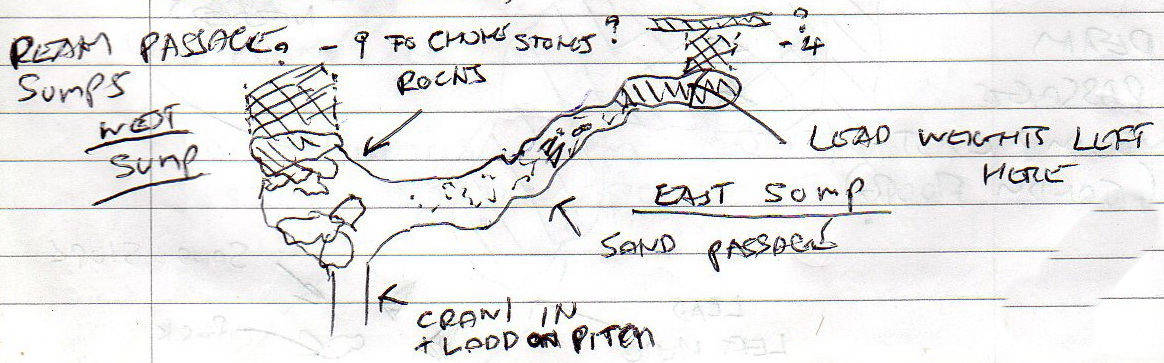 REAM PASSAGE ? - 9 TO CHOKE STONES ?
SUMPS
ROCKS
?
- 4
WEST
SUMP
LEAD WEIGHTS LEFT
HERE
EAST SUMP
SAND PASSAGE
CRAWL IN
+ LADD ON PITCH